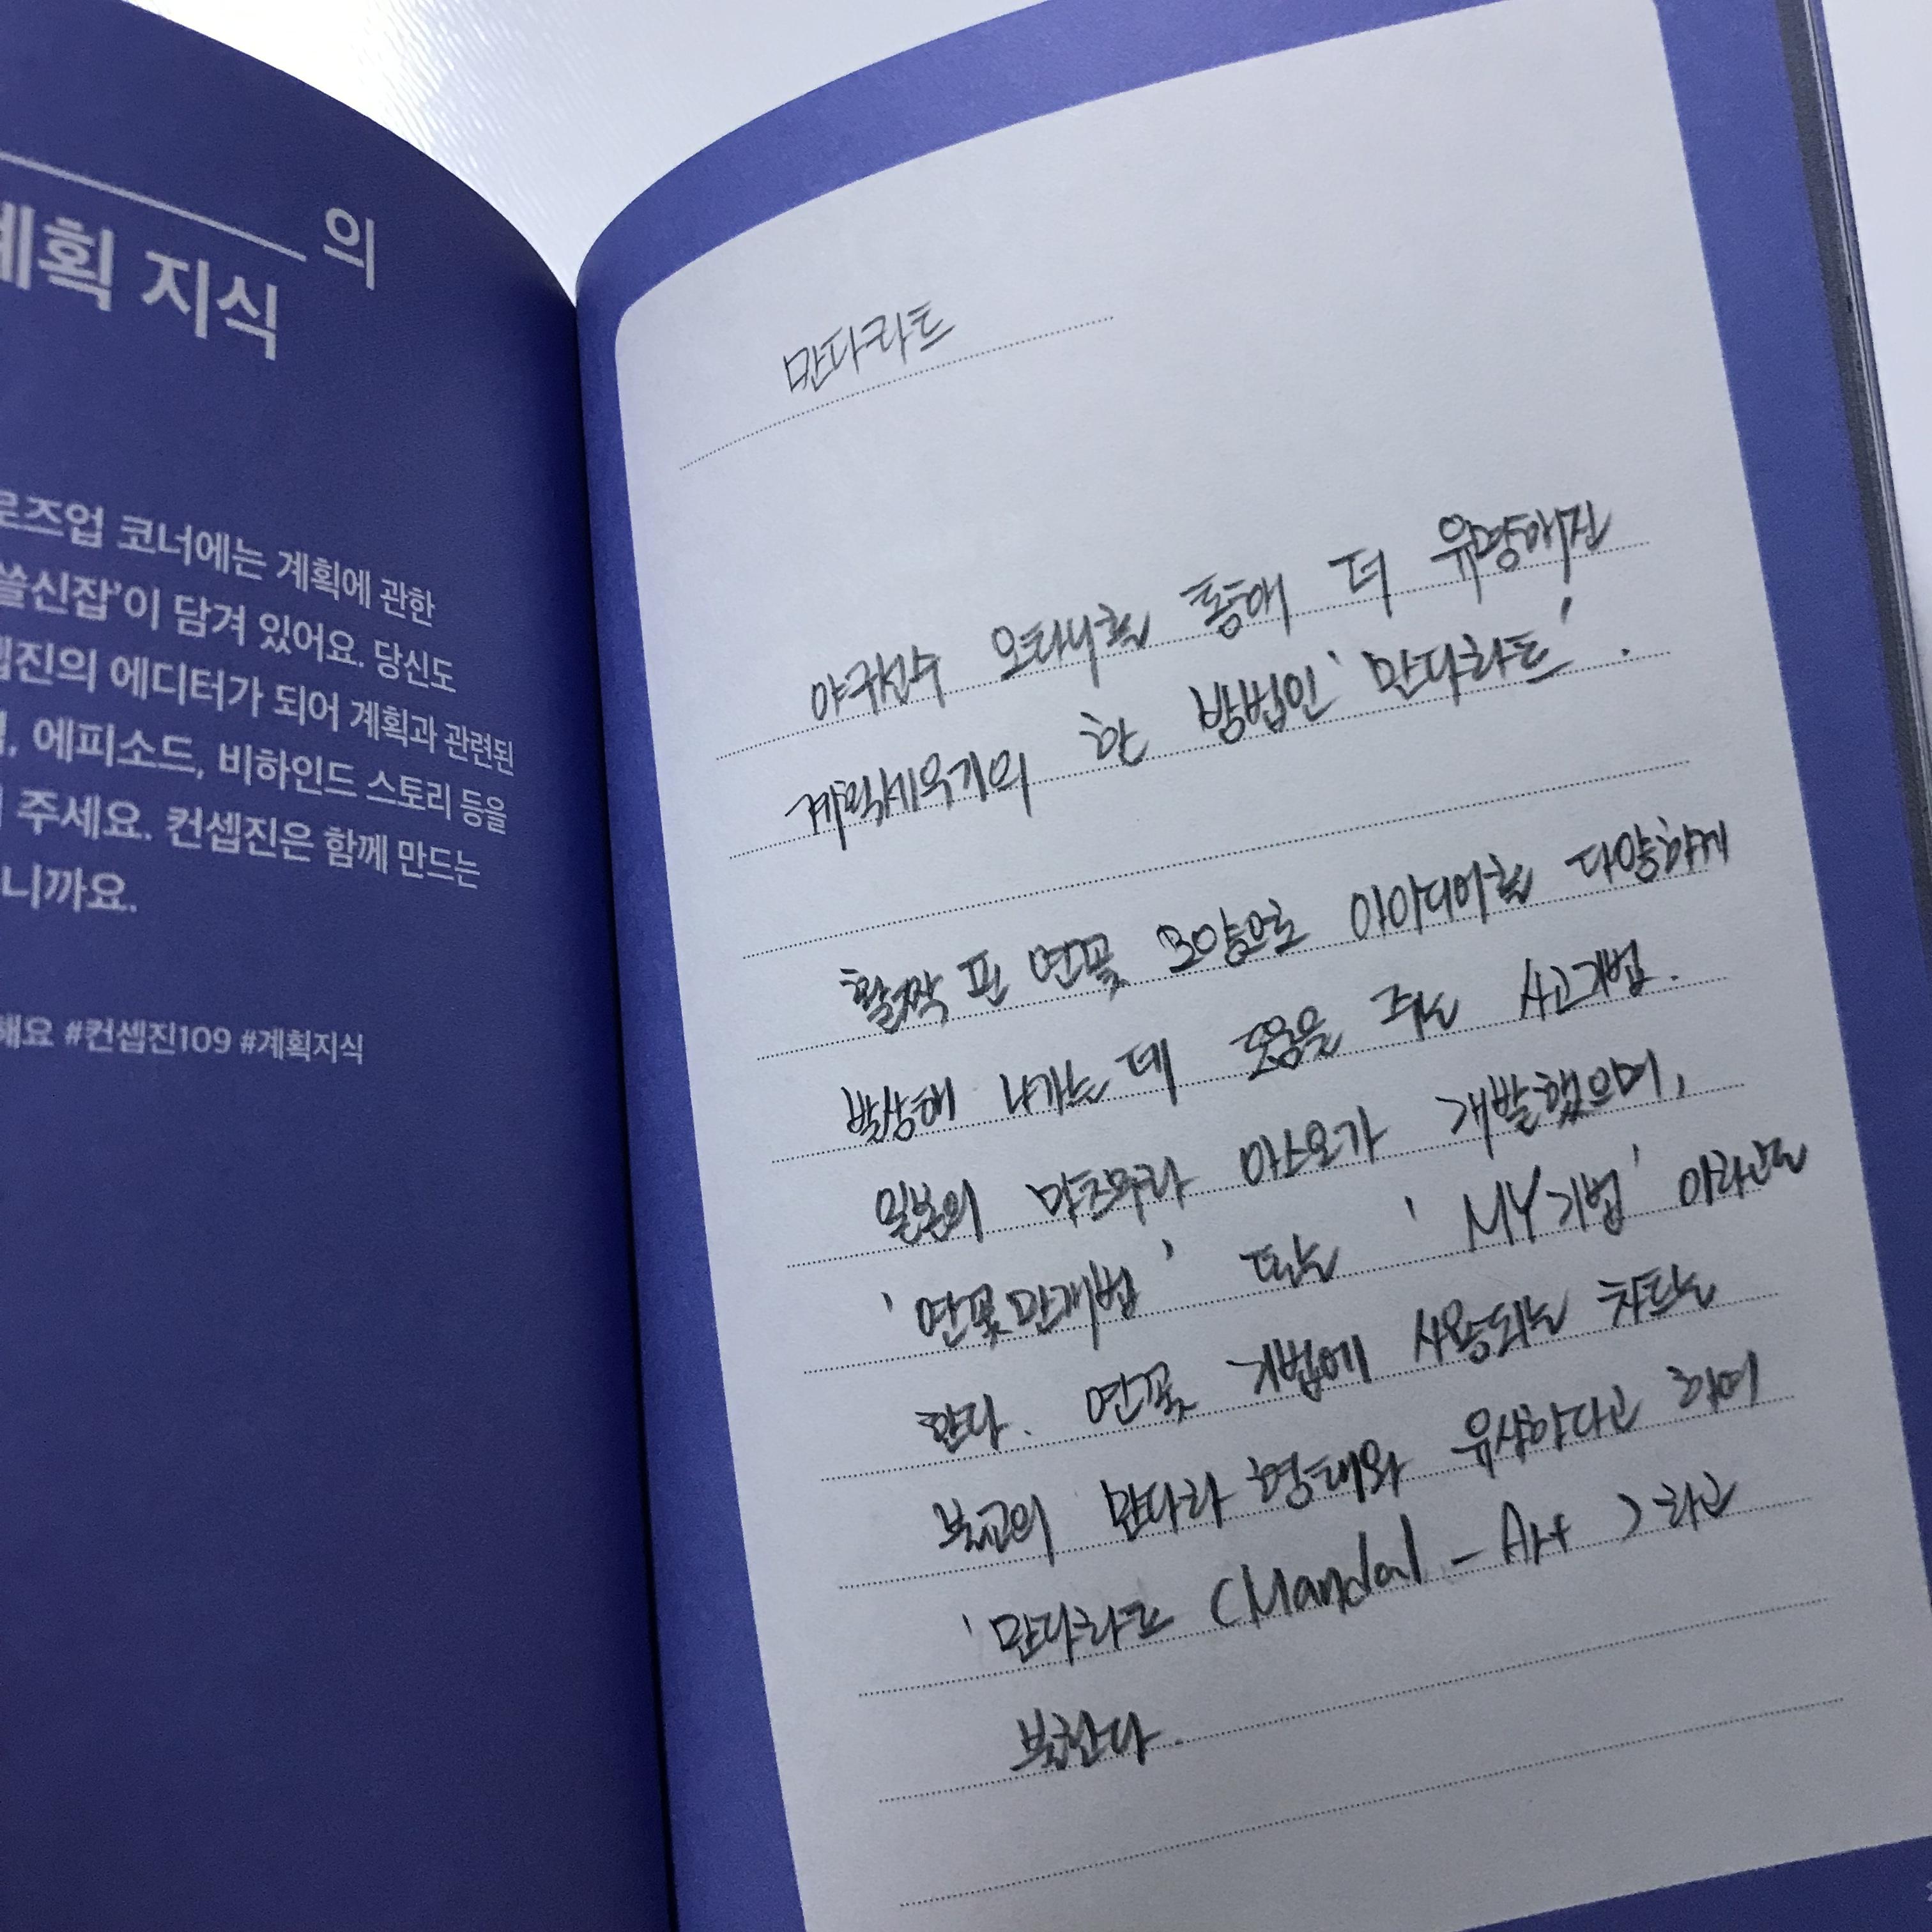 의
계획 지식
로즈업 코너에는 계획에 관한
쓸신잡'이 담겨 있어요. 당신도
셉진의 에디터가 되어 계획과 관련된
, 에피소드, 비하인드 스토리 등을
주세요. 컨셉진은 함께 만드는
니까요.
해요 #컨셉진109 #계획지식
만다라트
야구선수 오타니를 통해 더 유명해진
계획세우기의 한 방법인 '만다라트'.
활짝 핀 연꽃 모양으로 아이디어를 다양하게
발상해 나가는데 도움을 주는 사고기법.
일본의 마츠무라 야스오가 개발했으며,
'연꽃만개법' 또는 'MY기법' 이라고도
한다. 연꽃 기법에 사용되는 차트는
불교의 만다라 형태와 유사하다고 하며
'만다라트 (Mandal-Art) 라고
불린다.